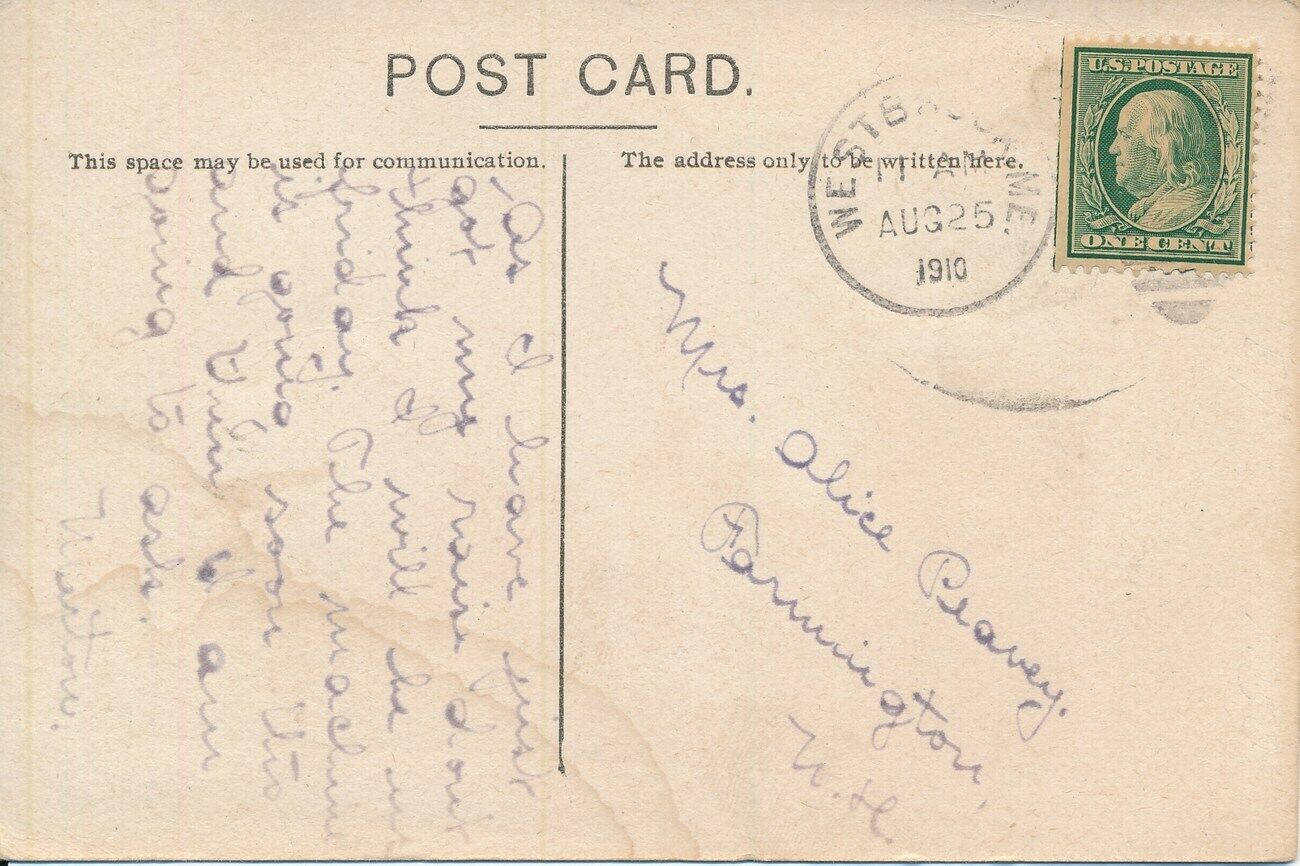 POST CARD.
This space may be used for communication.
The address only to be written here.
WESTBROOK, ME.
11 AM
AUG 25
1910
U.S. POSTAGE
ONE CENT
As I have just
got my raise dont
think I will be up
friday. The machine
is going soon too
and then I am
going to ask.
Mrs. Alice Peavey.
Farmington,
N.H.